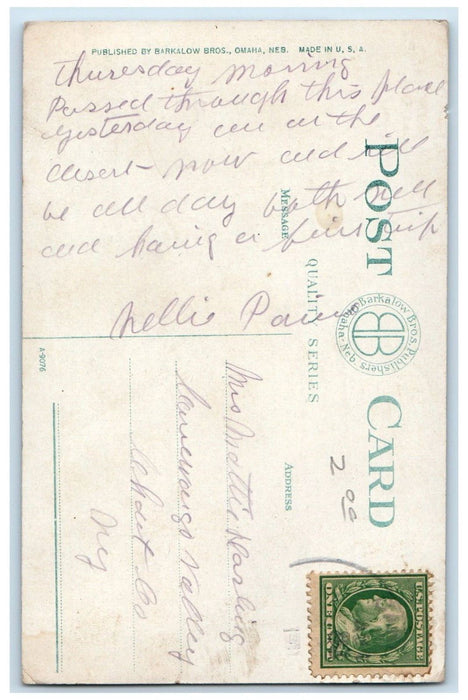 PUBLISHED BY BARKALOW BROS., OMAHA, NEB. MADE IN U. S. A.
Thuresday morning
Passed through this place
yesterday are on the
desert now and will
be all day both well
and having a fine trip
Nellie
POST CARD
QUALITY SERIES
MESSAGE
ADDRESS
Barkalow Bros. Publishers
Omaha Neb.
BB
A-9076
2 00
Mrs Mattie Darling
Valley
Schout Co
Ny
U.S. POSTAGE
ONE CENT